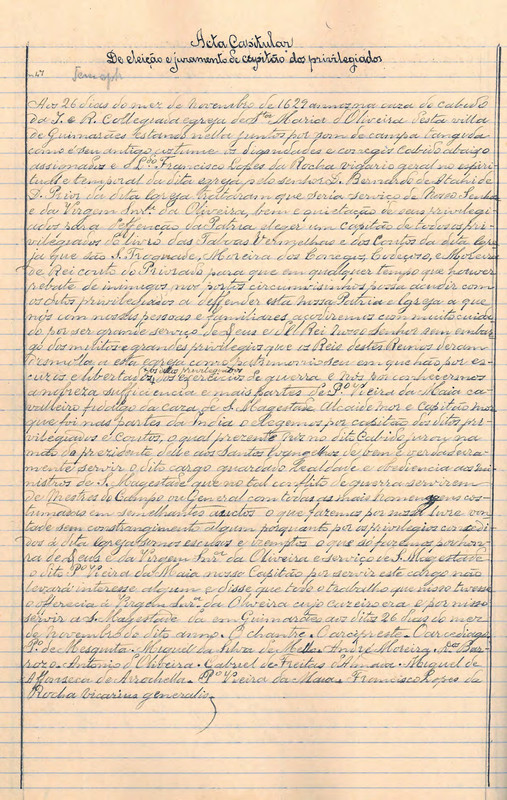 Acta Capitular
De eleição e juramento de capitão dos privilegiados
Aos 26 dias do mez de novembro de 1629 annos na caza do cabido
da I. e R. Collegiada egreja de Sta Maria d'Oliveira desta villa
de Guimarães estando nella juntos por som de campa tangida
como é seu antigo costume as dignidades e conegos cabido abaixo
assinados e o Ldo Francisco Lopes da Rocha vigario geral no espiri-
tual e temporal da dita egreja pelo senhor D. Bernardo de Ataide
D. Prior da dita Igreja trataram que seria serviço de Nosso Senhor
e da Virgem Snra da Oliveira, bem e quietação de seus privilegi-
ados para deffenção da Patria eleger um capitão de todos os pri-
vilegiados do livro das Tabvas Vermelhas e dos Coutos da dita egre-
ja que são S. Troquade, Moreira dos Conegos, Codeçoso, Moreira
de Rei couto do Privado para que em qualquer tempo que houver
rebate de inimigos nos portos circumvisinhos possa acudir com
os ditos privilegiados a deffender esta nossa Patria e Igreja a que
nós com nossas pessoas e familiares acudiremos com muito cuida-
do por ser grande serviço de Deus e d'El Rei Nosso Senhor sem embar-
go dos muitos e grandes privilegios que os Reis destes Reinos deram
e esta egreja como patrimonio seu em que hão por es-
cuzos e libertados os ditos privilegiados dos exercicios de guerra e nós por conhecermos
a nobreza sufficiencia e mais partes de Po Vieira da Maia ca-
valleiro fidalgo da caza de S. Magestade Alcaide mor e Capitão mor
que foi nas partes da India o elegemos por capitão dos ditos pri-
vilegiados e Coutos, o qual prezente nós no dito Cabido jurou na
mão do prezidente delle aos Santos Evangelhos de bem e verdadeira-
mente servir o dito cargo guardado lealdade e obediencia aos mi-
nistros de S. Magestade que no tal conflito de guerra servirem
de Mestres de Campo ou General com todas as mais homenagens cos-
tumadas em semelhantes auctos o que fazemos por nossa livre von-
tade sem constrangimento algum porquanto por os privilegios concedi-
dos á dita Igreja somos escusos e izemptos o que só faremos por hon-
ra de Deus e da Virgem Snra da Oliveira e serviço de S. Magestade
o dito Po Vieira da Maia nosso Capitão por servir este cargo não
levará interesse algum e disse que todo o trabalho que nisso tivesse
o offerecia á Virgem Snra da Oliveira cujo cazeiro era e por nisso
servir a S. Magestade da em Guimarães aos ditos 26 dias do mez
de novembro do dito anno. O chantre. O arcipreste. O arcediago.
Po de Mesquita. Miguel da Silva de Mello. André Moreira. Bar-
rozo. Antonio d'Oliveira. Gabriel de Freitas d'Amaia. Miguel de
Affonseca de Arrochella. Po Vieira da Maia. Francisco Lopes da
Rocha vicarius generalis.